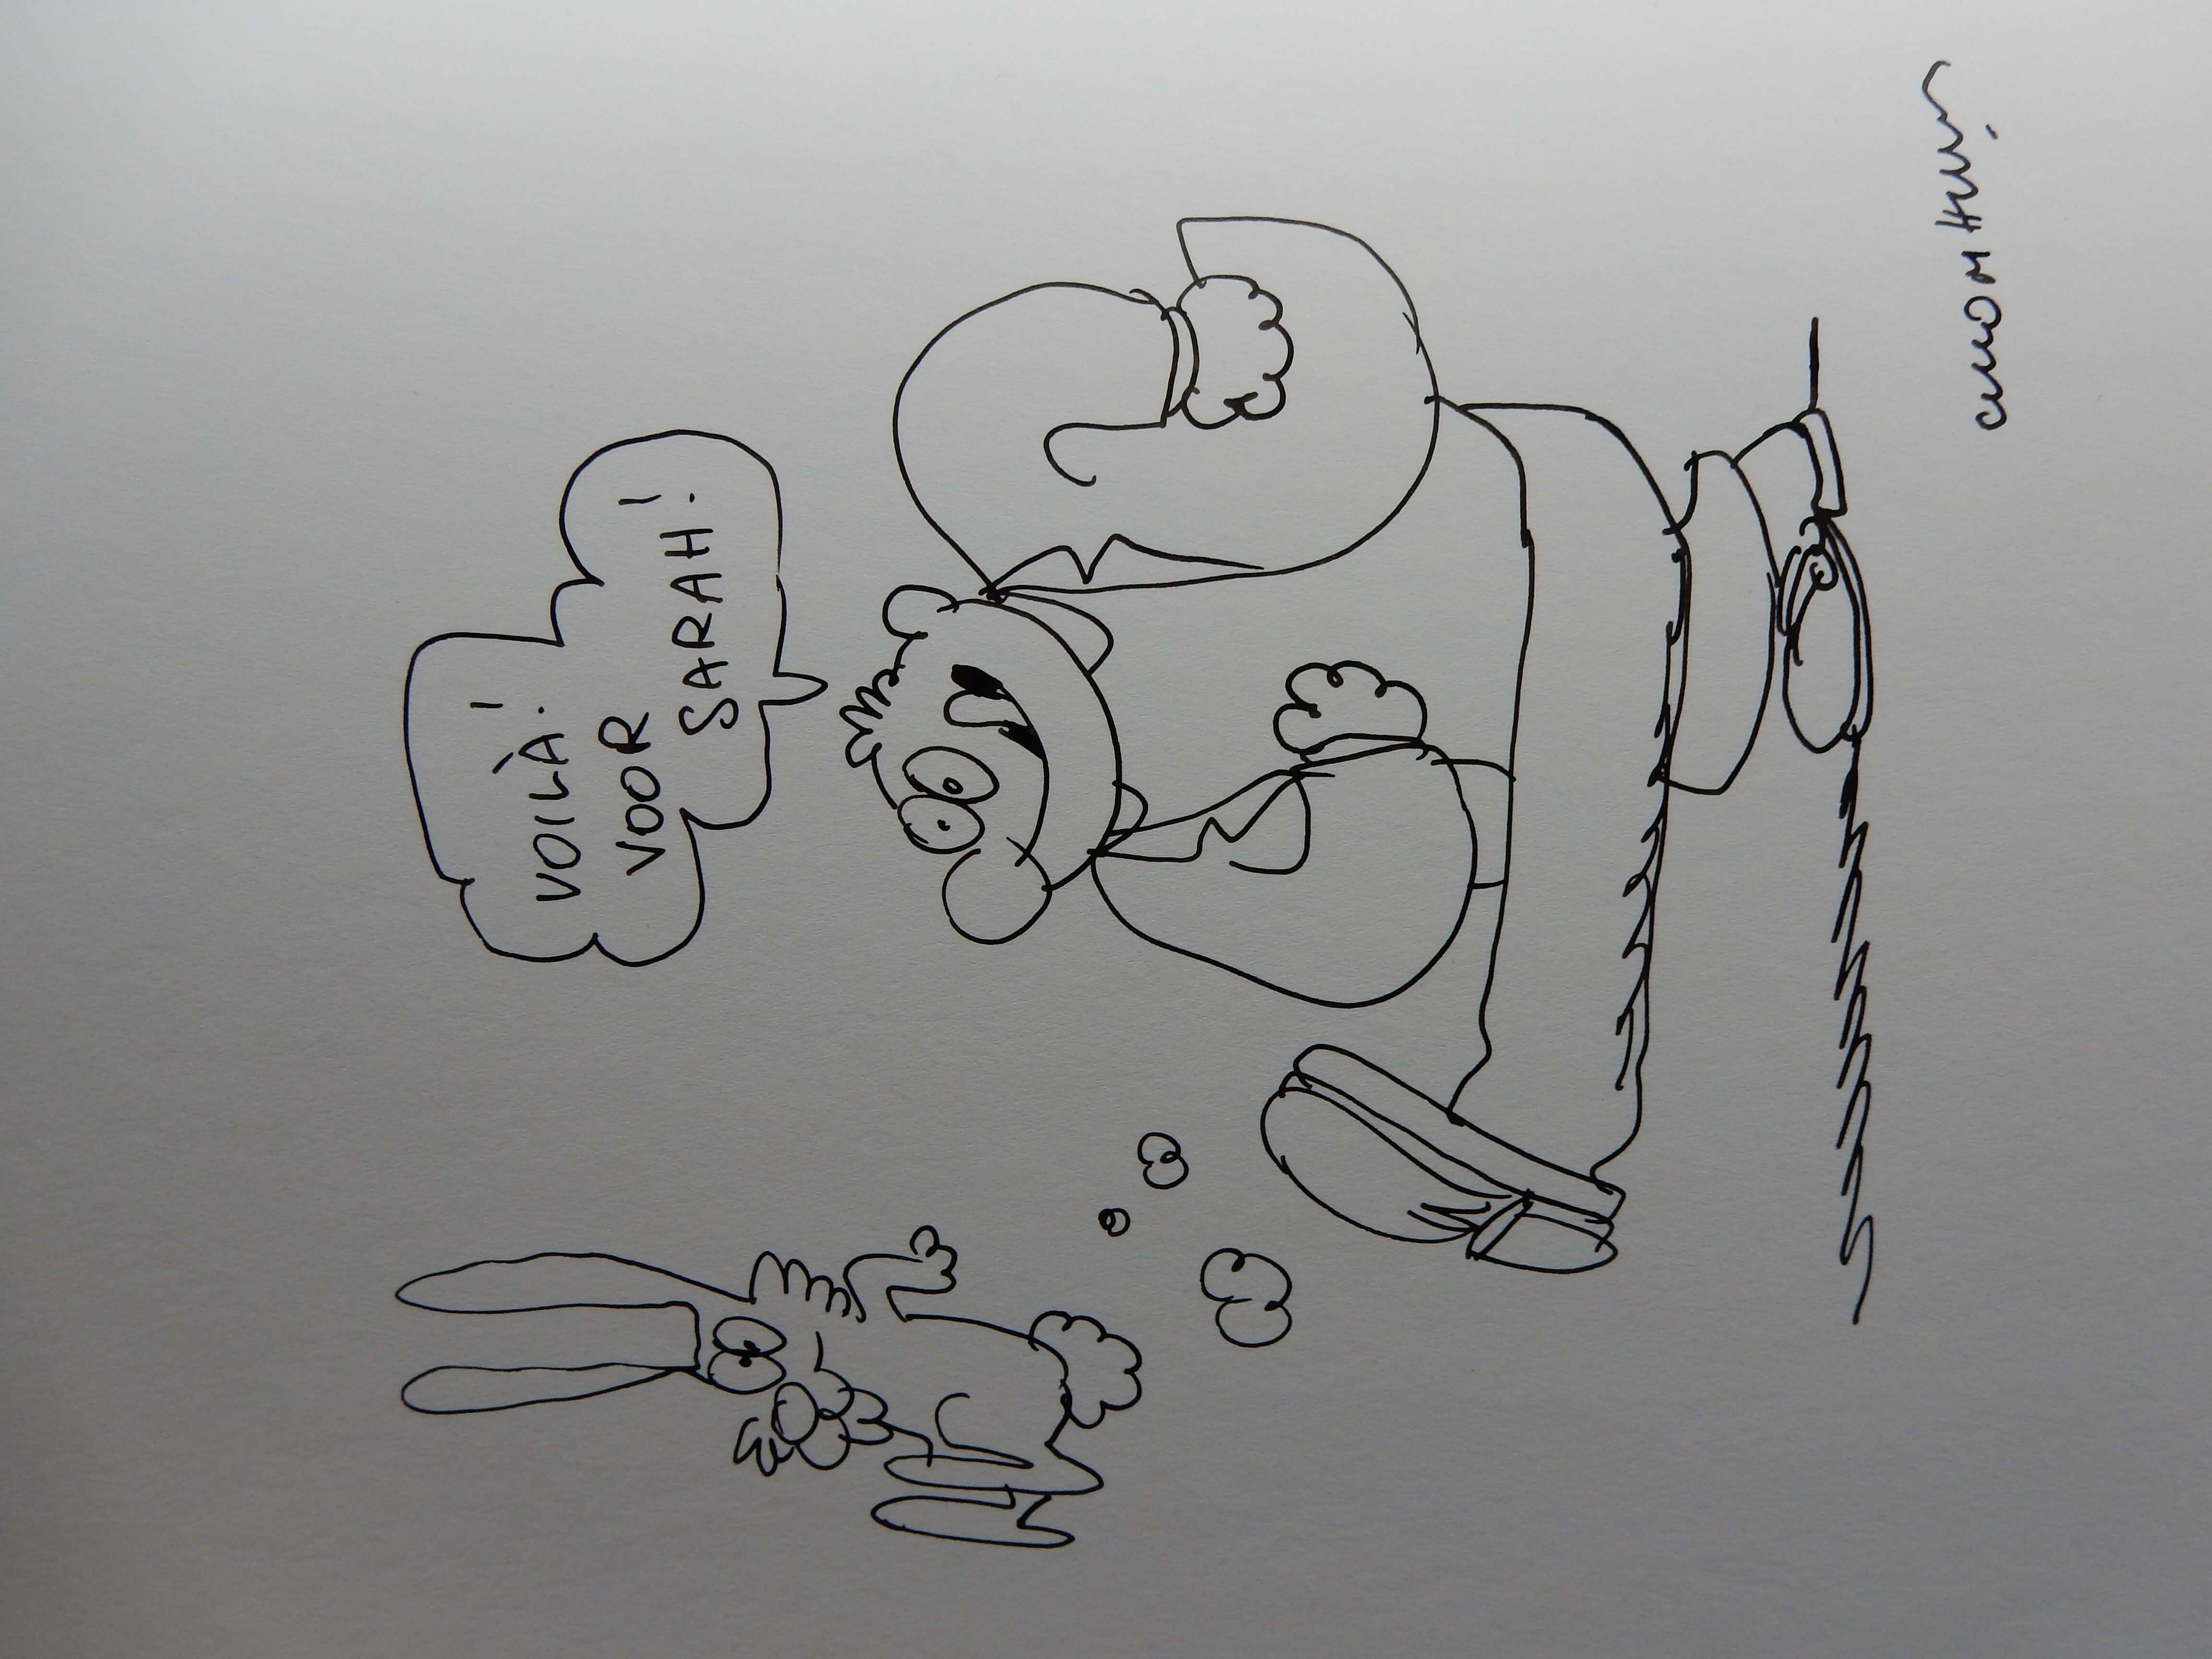 VOILÀ!
VOOR
SARAH!